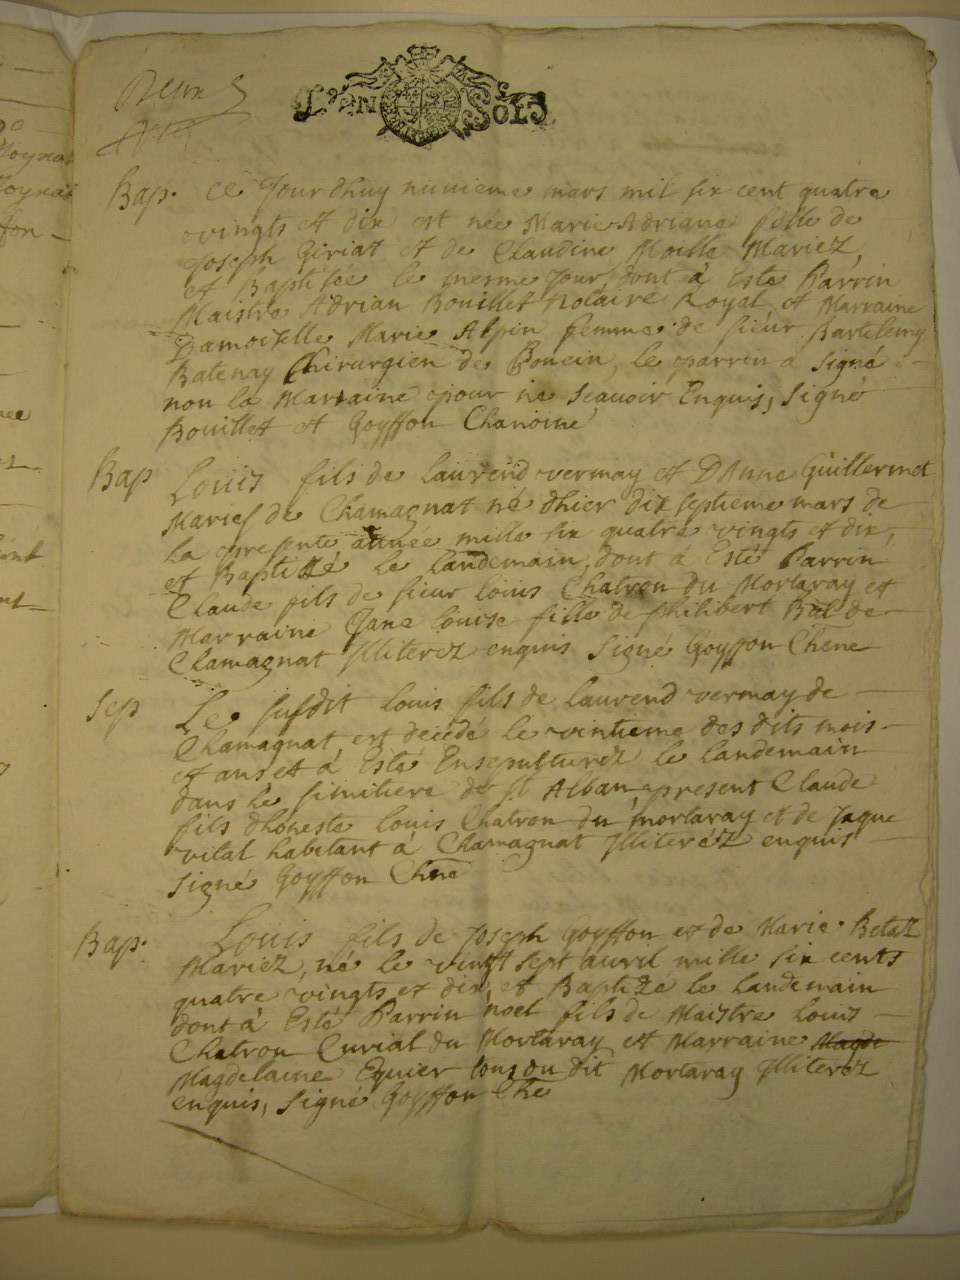 Deux
Gen Sols
Bap. Ce Jourdhuy nuvieme mars mil six cent quatre
vingts et dix est née Marie Adriane fille de
Joseph Giriat et de Claudine Moille Mariez
et Baptisée le mesme Jour, dont à Esté Parrin
Maistre Adrian Bouillet Notaire Royal et Marraine
Damoiselle Marie Alpin femme de sieur Bartelemy
Batenay Chirurgien de Poncin, le parrin a signé
non la Marraine pour ne scauoir Enquis, signé
Bouillet et Goyffon Chanoine
Bap Louis fils de laurend vermay et D'Anne Guillermet
Maries de Chamagnat né dhier dix septieme mars de
la presente année mille six quatre vingts et dix,
et Baptizé le landemain, dont à Esté Parrin
Claude fils de sieur louis Chatron du Mortaray et
Marraine Jane louise fille de philibert Bal de
Chamagnat Illiterez enquis signé Goyffon Chene
Sep Le susdit louis fils de laurend vermay de
Chamagnat est decédé le vintieme des dits mois
et ans et à Esté Ensepulturéz le landemain
dans le similiere de st Alban present Claude
fils dhoneste louis Chatron du mortaray et de Jaque
vital habitant à Chamagnat Illiteréz enquis
signé Goyffon Chne
Bap. Louis fils de Joseph Goyffon et de Marie Betaz
Mariez, né le vingt sept avril mille six cents
quatre vingts et dix, et Baptizé le landemain
dont à Esté Parrin noel fils de Maistre Louis
Chatron Curial du Mortaray et Marraine Magde
Magdelaine Equier tous du dit Mortaray Illiteréz
enquis, signé Goyffon Che